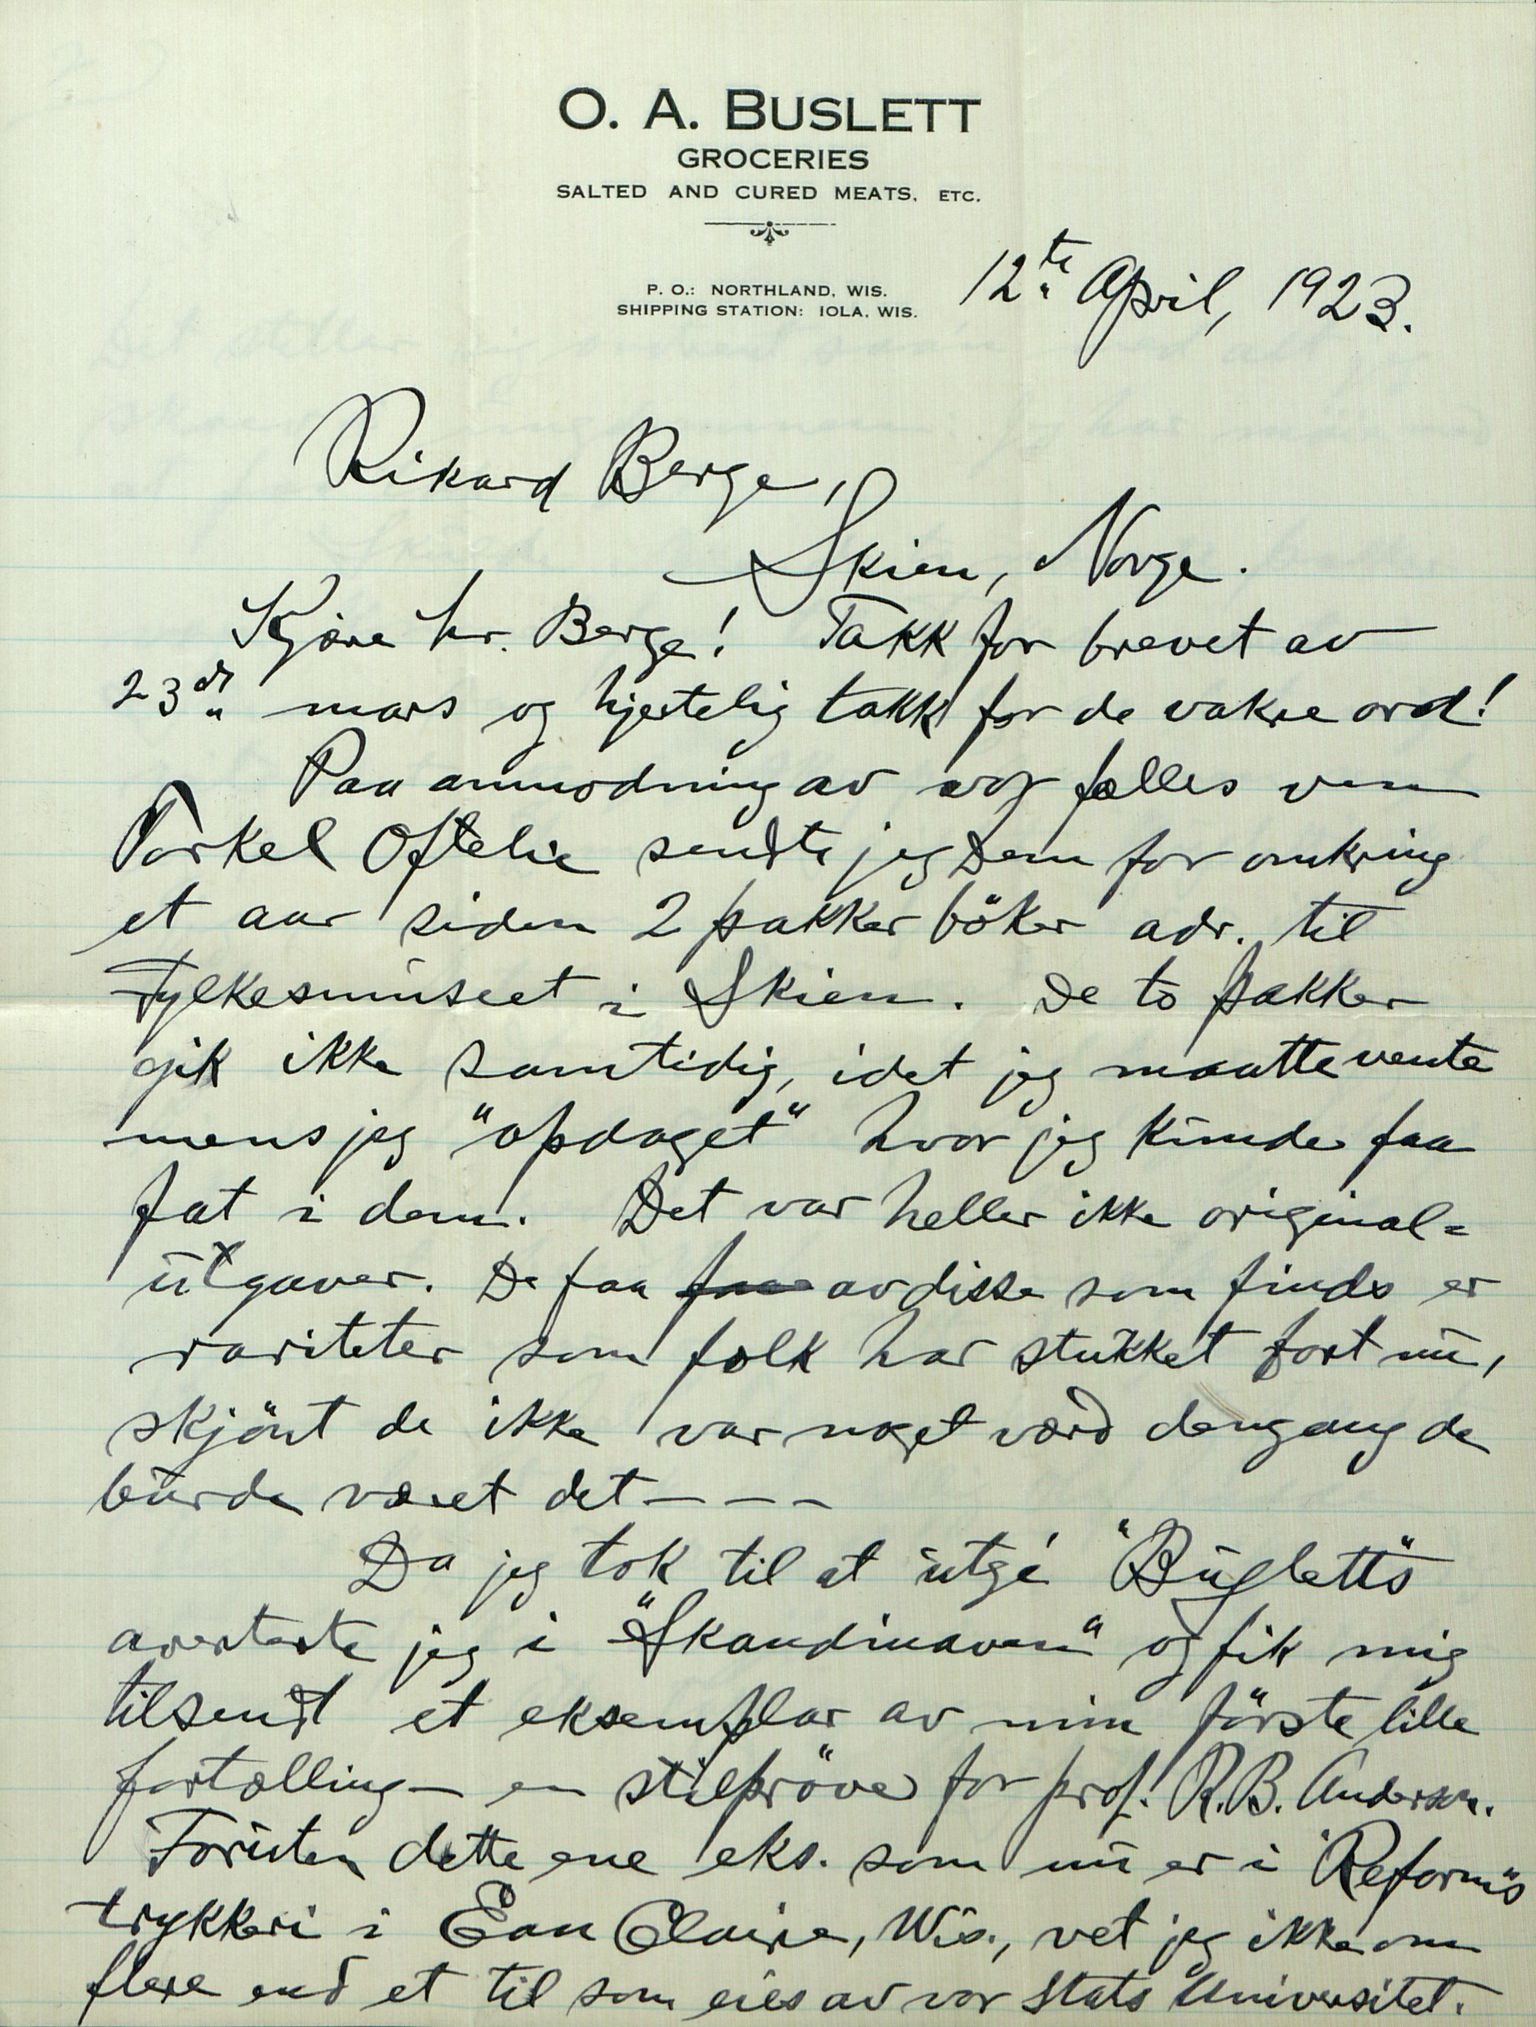 O. A. BUSLETT
GROCERIES
SALTED AND CURED MEATS, ETC.
P. O.: NORTHLAND, WIS.
SHIPPING STATION: IOLA, WIS.
12te April, 1923.
Rikard Berge,
Skien, Norge.
Kjære hr. Berge! Takk for brevet av
23de mars og hjertelig takk for de vakre ord!
Paa anmodning av vor fælles ven
Torkel Oftelie sendte jeg Dem for omkring
et aar siden 2 pakker böker adr. til
Fylkesmuseet i Skien. De to pakker
gik ikke samtidig, idet jeg maatte vente
mens jeg "opdaget" hvor jeg kunde faa
fat i dem. Det var heller ikke original=
utgaver. De faa faa av disse som finds er
rariteter som folk har stukket bort nu,
skjönt de ikke var noget værd dengang de
burde været det - - -
Da jeg tok til at utgi "Busletts"
averterte jeg i "Skandinaven" og fik mig
tilsendt et eksemplar av min förste lille
fortælling — en stilpröve for prof. R. B. Anderson.
Foruten dette ene eks. som nu er i "Reform"s
trykkeri i Eau Claire, Wis., vet jeg ikke om
flere end et til som eies av vor Stats Universitet.